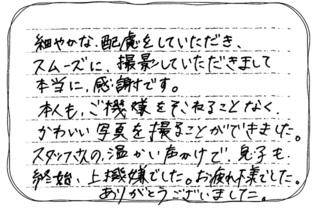 細やかな、配慮をしていただき、
スムーズに、撮影していただきまして
本当に、感謝です。
本人も、ご機嫌をそこねることなく、
かわいい写真を撮ることができました。
スタッフさんの、温かい声かけで、息子も、
終始、上機嫌でした。お疲れ様でした。
ありがとうございました。